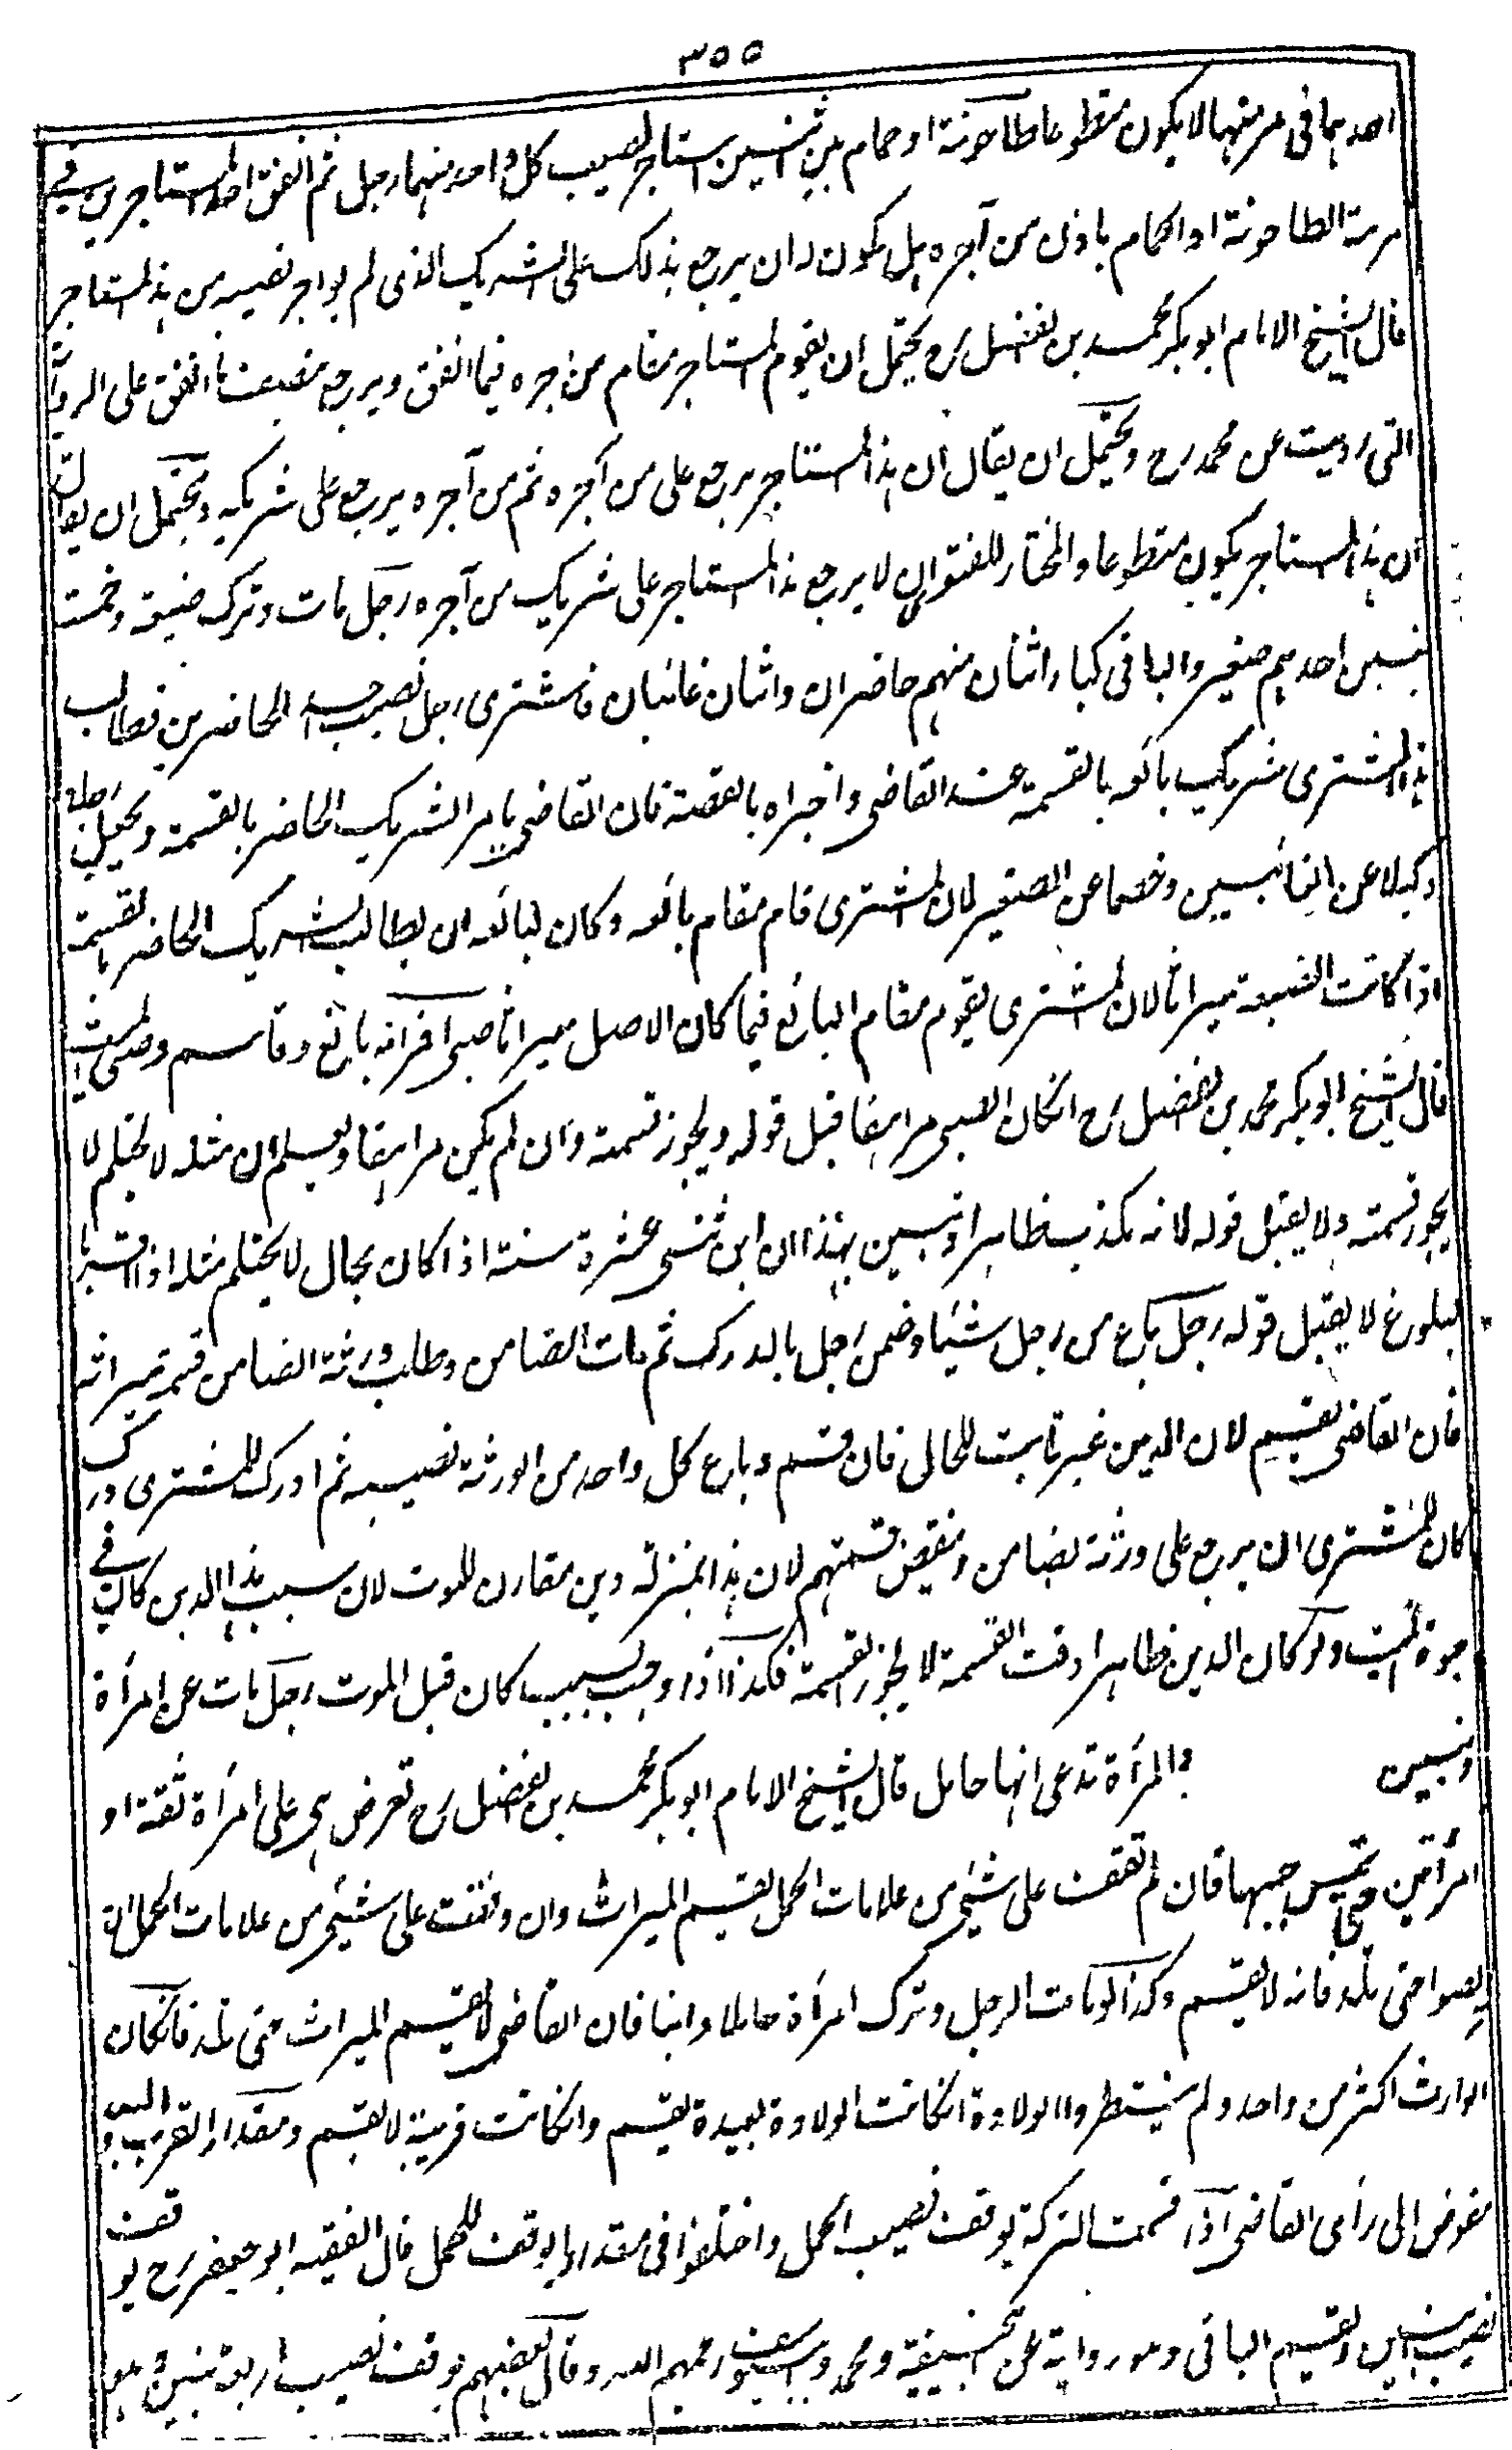 ٣٥٥
احدهما فى مرمتها لا يكون متطوعا طاحونة او حمام بين اثنين استاجر نصيب كل واحد منهما رجل ثم انفق احد المستاجرين فى
مرمة الطاحونة او الحمام باذن من آجره هل يكون له ان يرجع بذلك على الشريك الذى لم يواجر نصيبه من هذا المستاجر
قال الشيخ الامام ابو بكر محمد بن الفضل رح يحتمل ان يقوم المستاجر مقام من اجره فيما انفق ويرجع بنصف ما انفق على الرواية
التى رويت عن محمد رح ويحتمل ان يقال ان هذا المستاجر يرجع على من آجره ثم من آجره يرجع على شريكه ويحتمل ان يقال
ان هذا المستاجر يكون متطوعا والمختار للفتوى ان لا يرجع هذا المستاجر على شريك من آجره رجل مات وترك ضيعة وخمسة
بنين احدهم صغير والباقى كبار اثنان منهم حاضران واثنان غائبان فاشترى رجل نصيب احد الحاضرين فطالب
هذا المشترى شريك بائعه بالقسمة عند القاضى واخبراه بالقصة فان القاضى يامر الشريك الحاضر بالقسمة ويجعل
وكيلا عن الغائبين وخصما عن الصغير لان المشترى قام مقام بائعه وكان لبائعه ان يطالب الشريك الحاضر بالقسمة
اذا كانت الضيعة ميراثا لان المشترى يقوم مقام البائع فيما كان الاصل ميراثا صبى اقر انه بالغ وقاسم وصى الميت
قال الشيخ ابو بكر محمد بن الفضل رح ان كان الصبى مراهقا قبل قوله ويجوز قسمته وان لم يكن مراهقا ويعلم ان مثله لا يحتلم لا
يجوز قسمته ولا يقبل قوله لانه مكذب ظاهرا وتبين بهذا ان ابن ثنتى عشرة سنة اذا كان بحال لا يحتلم مثله اذا اقر
بالبلوغ لا يقبل قوله رجل باع من رجل شيئا وضمن رجل بالدرك ثم مات الضامن وطلب ورثة الضامن قسمة ميراثه
فان القاضى يقسم لان الدين غير ثابت للحال فان قسم وباع كل واحد من الورثة نصيبه ثم ادرك المشترى درك
كان للمشترى ان يرجع على ورثة الضامن وينقض قسمتهم لان هذا بمنزلة دين مقارن للموت لان سبب هذا الدين كان فى
حيوة الميت ولو كان الدين ظاهرا وقت القسمة لا يجوز القسمة فكذا اذا وجب بسبب كان قبل الموت رجل مات عن امرأة
وبنين والمرأة تدعى انها حامل قال الشيخ الامام ابو بكر محمد بن الفضل رح تعرض هى على امرأة ثقة او
امرأتين حتى تمس جنبها فان لم تقف على شيئ من علامات الحمل يقسم الميراث وان وقفت على شيئ من علامات الحمل ان
تربصوا حتى تلد فانه لا يقسم وكذا لو مات الرجل وترك امرأة حاملا وابنا فان القاضى لا يقسم الميراث حتى تلد فان كان
الوارث اكثر من واحد ولم ينتظروا الولادة ان كانت الولادة بعيدة يقسم وان كانت قريبة لا يقسم ومقدار القرب والبعد
مفوض الى رأى القاضى اذا قسمت التركة يوقف نصيب الحمل واختلفوا فى مقدار ما يوقف للحمل قال الفقيه ابو جعفر رح يوقف
نصيب ابنين ويقسم الباقى وهو رواية عن ابى حنيفة ومحمد وابى يوسف رحمهم الله وقال بعضهم يوقف نصيب اربعة بنين وهو